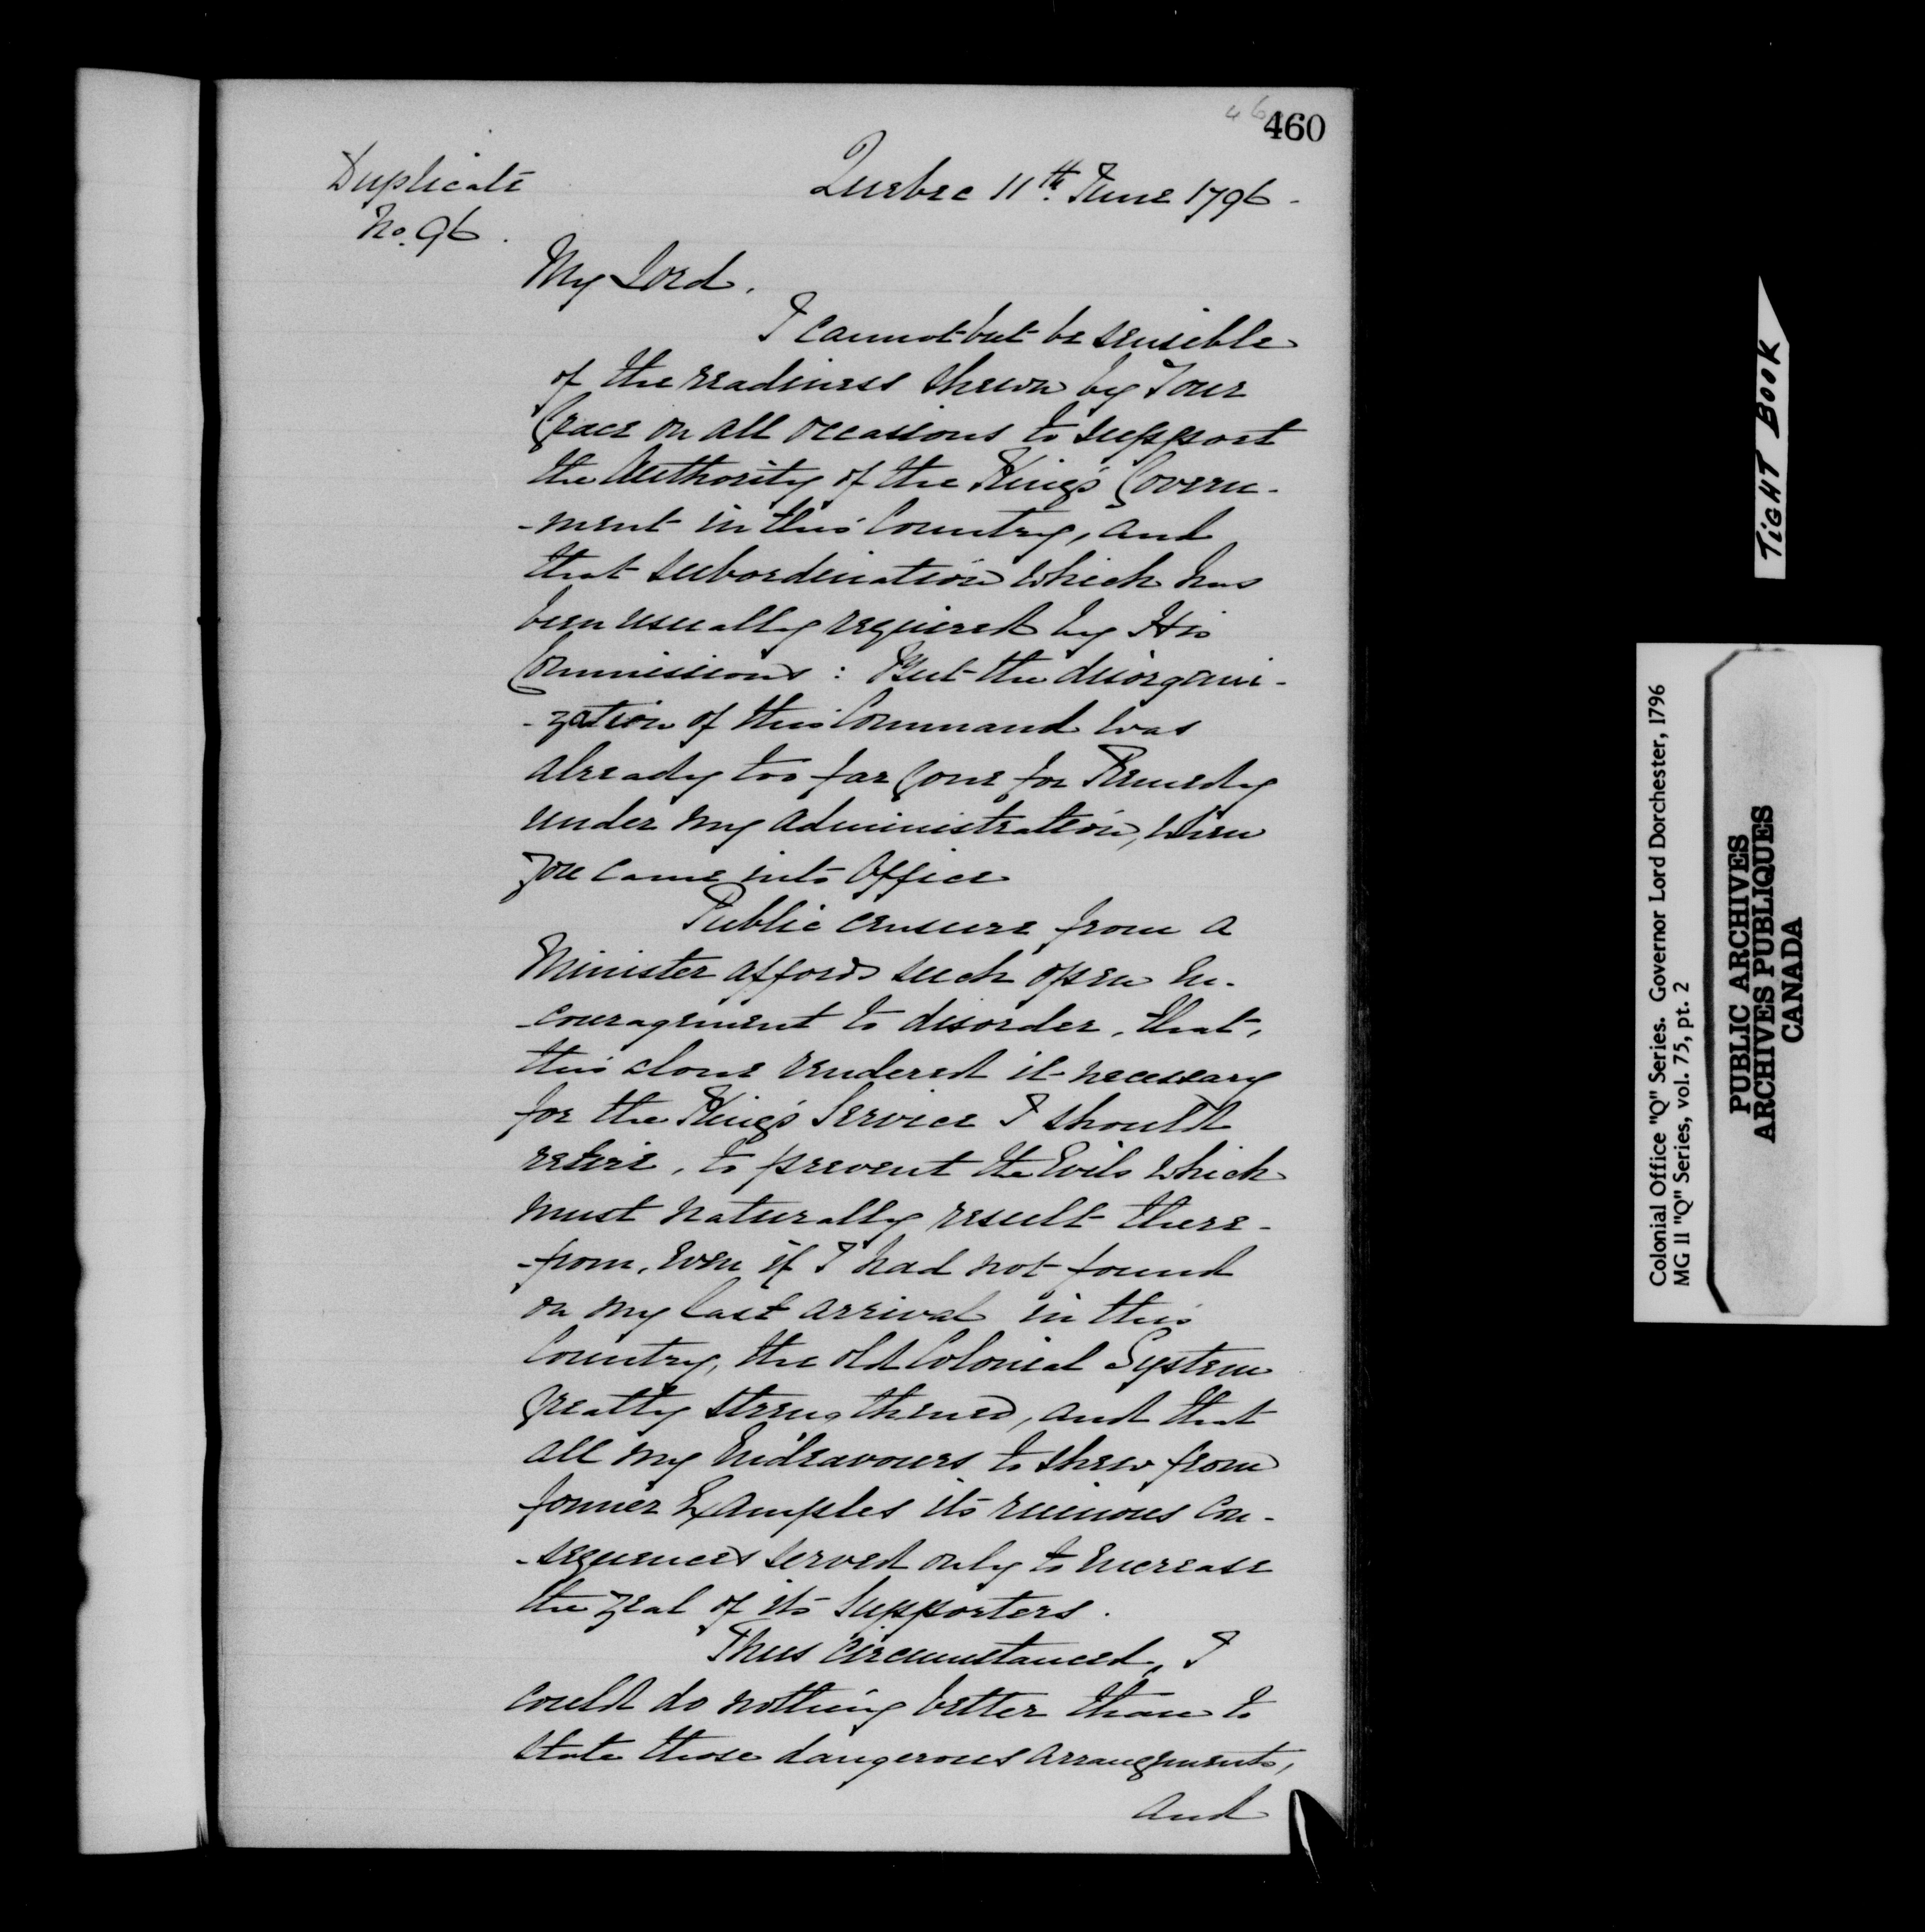 46
460
Duplicate
No. 96.
Quebec 11th. June 1796.
My Lord.
I cannot but be sensible
of the readiness shewn by Your
Grace on all occasions to support
the Authority of the King's Govern-
-ment in this Country, and
that subordination which has
been usually required by His
Commissions: But the disorgani-
-zation of this Command was
already too far gone for Remedy
under my administration, when
you came into Office
Public censure from a
Minister affords such open En-
-couragement to disorder, that,
this alone rendered it necessary
for the King's Service I should
retire, to prevent the Evils which
must naturally result there-
-from, even if I had not found
on my last arrival in this
Country, the old Colonial System
greatly strengthened, and that
all my Endeavours to shew from
former Examples its ruinous con-
-sequences served only to encrease
the zeal of its Supporters.
Thus circumstanced, I
could do nothing better than to
state those dangerous arrangements,
and
TIGHT BOOK
Colonial Office "Q" Series. Governor Lord Dorchester, 1796
MG 11 "Q" Series, vol. 75, pt. 2
PUBLIC ARCHIVES
ARCHIVES PUBLIQUES
CANADA